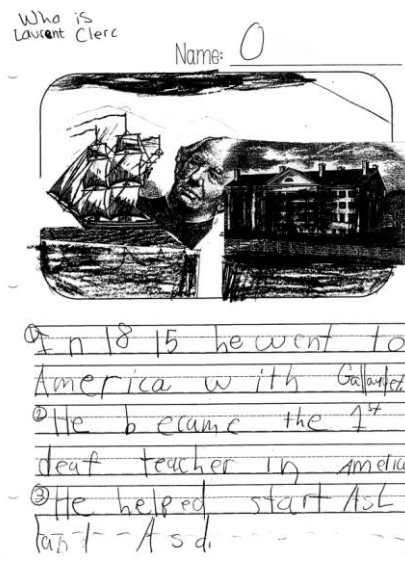 Who is
Laurent Clerc
Name: O
① In 1815 he went to
America with Gallaudet
② He became the 1st
deaf teacher in America
③ He helped start ASL
and Asd.